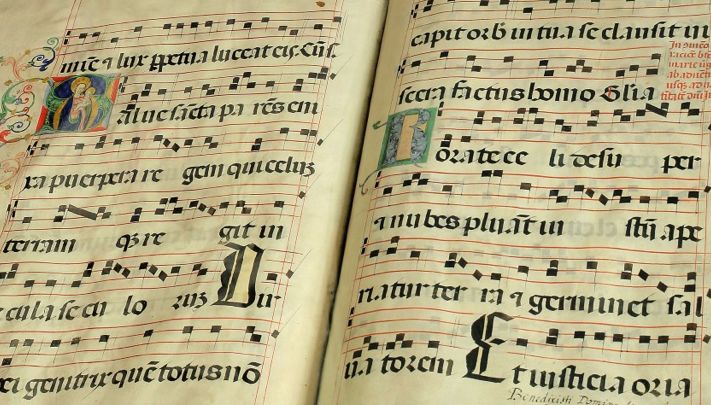 & lux ppetua luceat eis. Cuȝ
Salue sācta parēs eni
xa puerpera re gem qui celuȝ
terram qȝ re git in
cula secu lo ruȝ Vir
ei genitrix quē totus nō
capit orb̄ in tua se clausit ui
scera factus homo Glia
Rorate ce li desu per
& nubes pluāt iu stū ape
riatur ter ra & germinet sal
ua torem Et iusticia oria
Benedicisti Domine